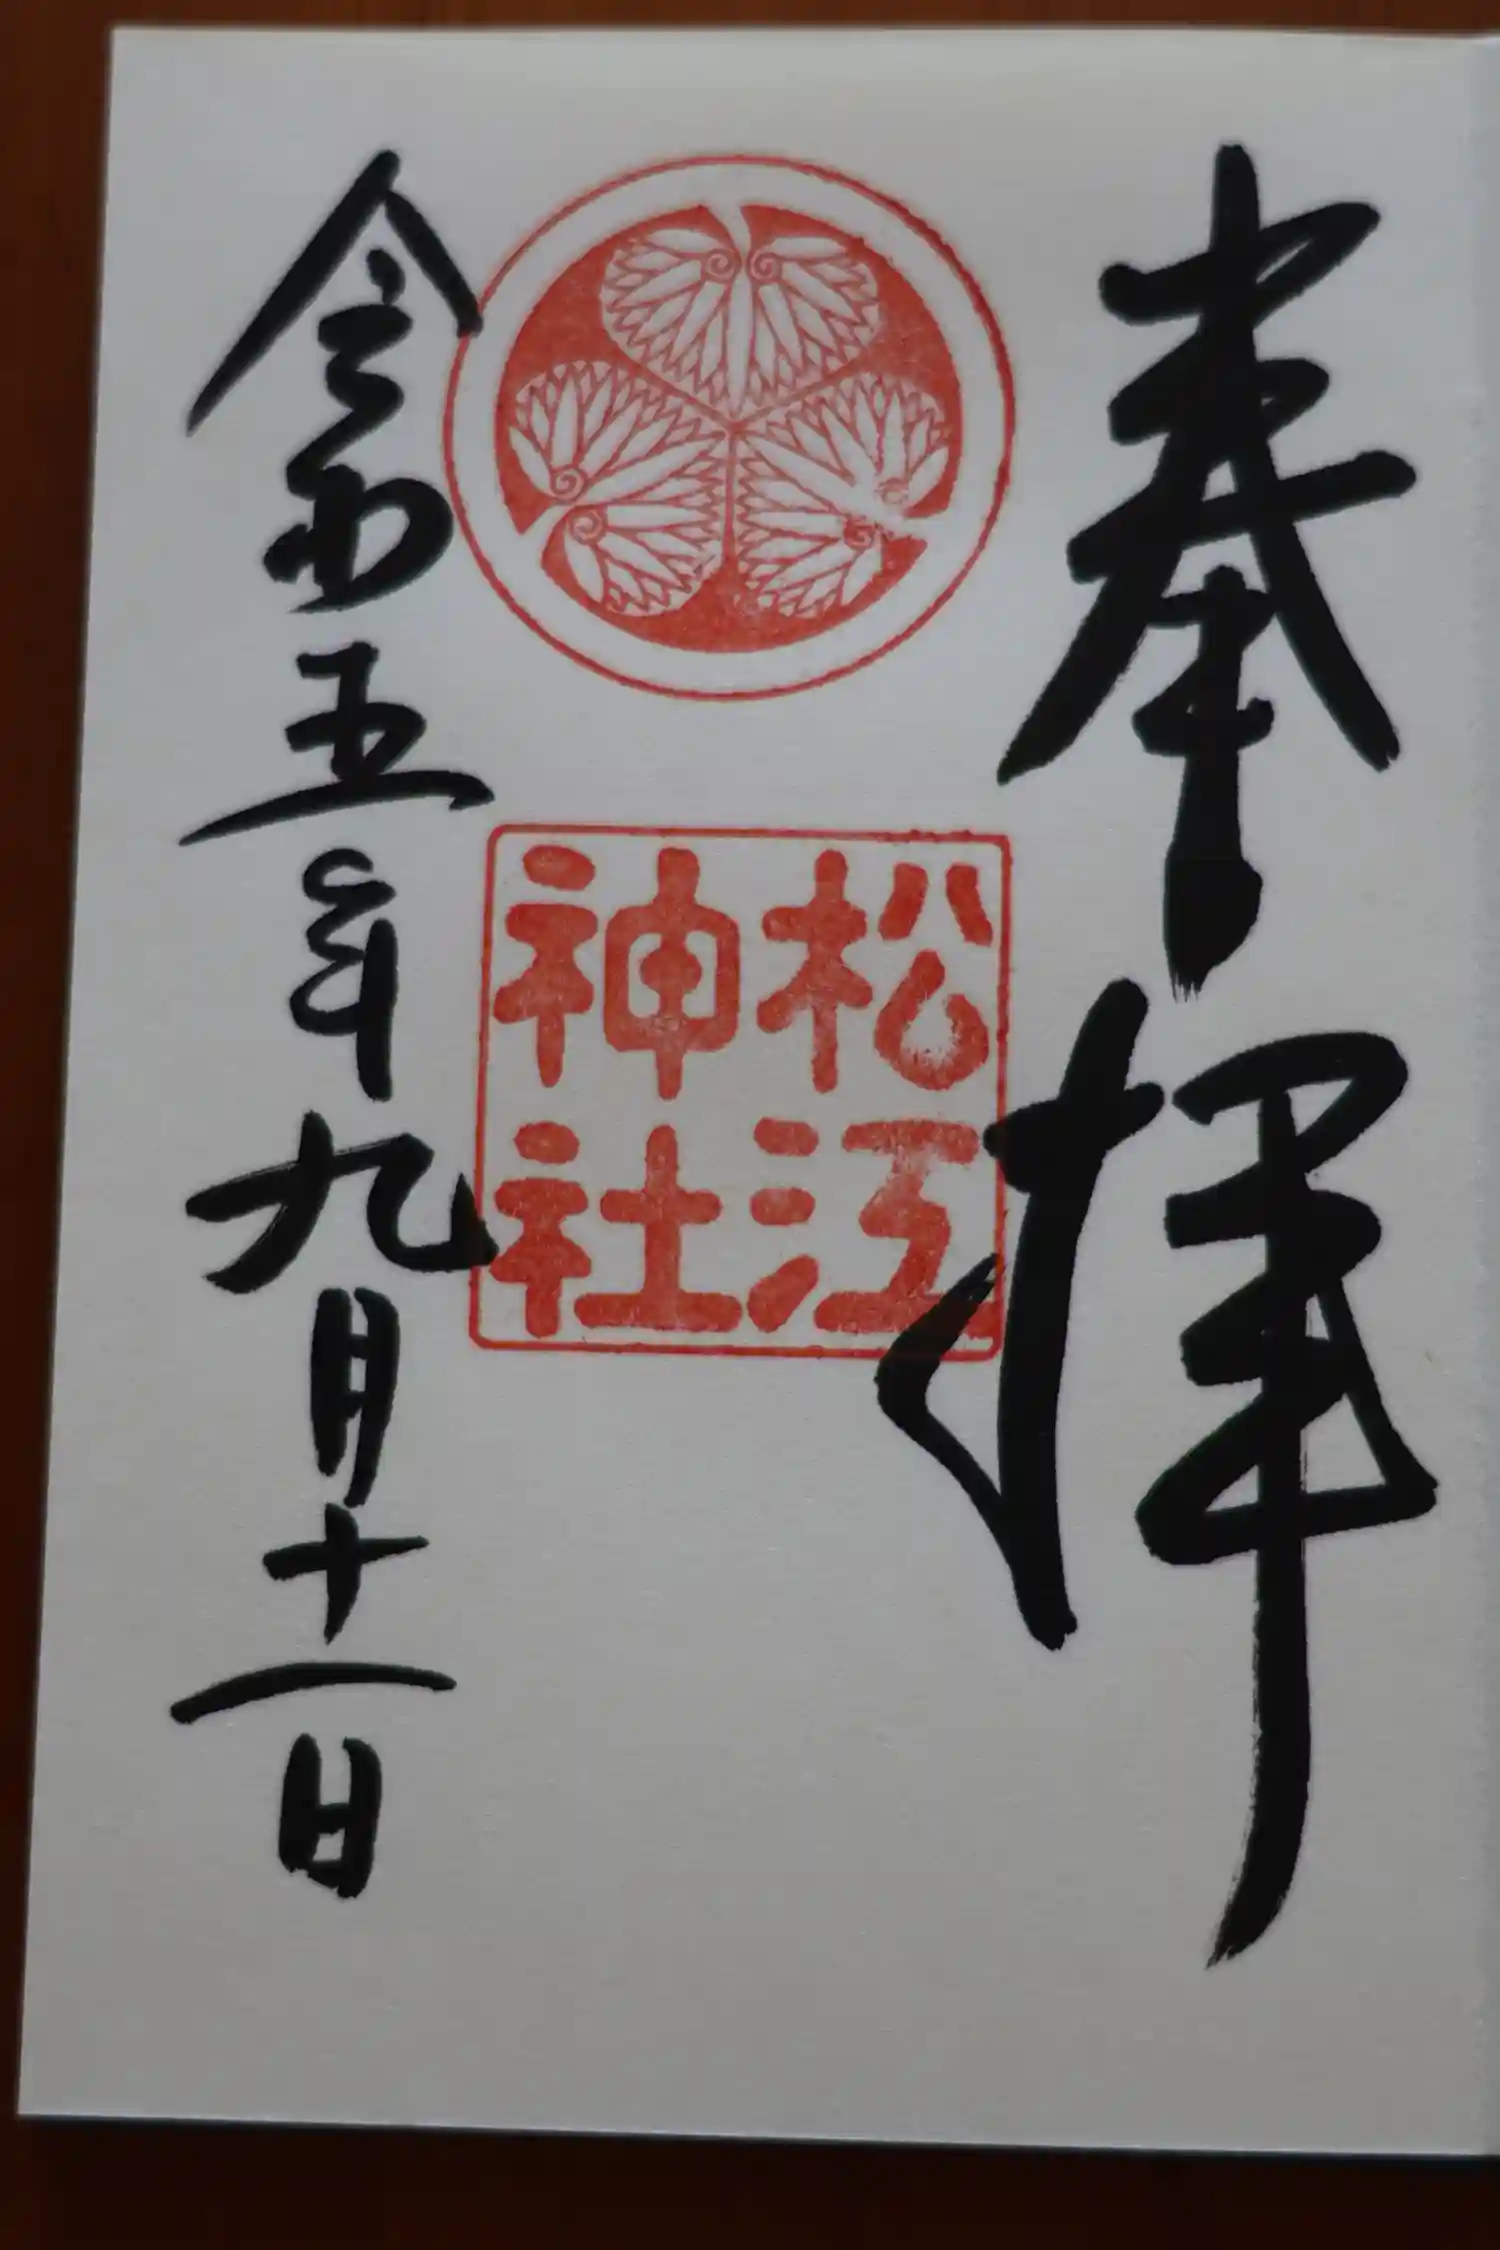 奉拝
松江
神社
令和五年九月十一日